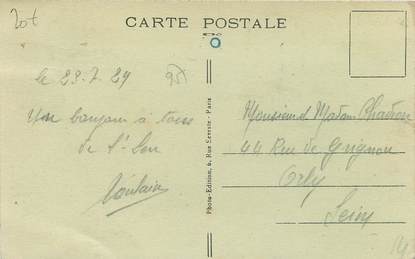 CARTE POSTALE
le 23-7-29
Un bonjour à tous
de St Leu
Toulain
Photo-Edition, 6, Rue Severin - Paris
Monsieur et Madame Chadron
44 Rue de Grignon
Orly
Seine